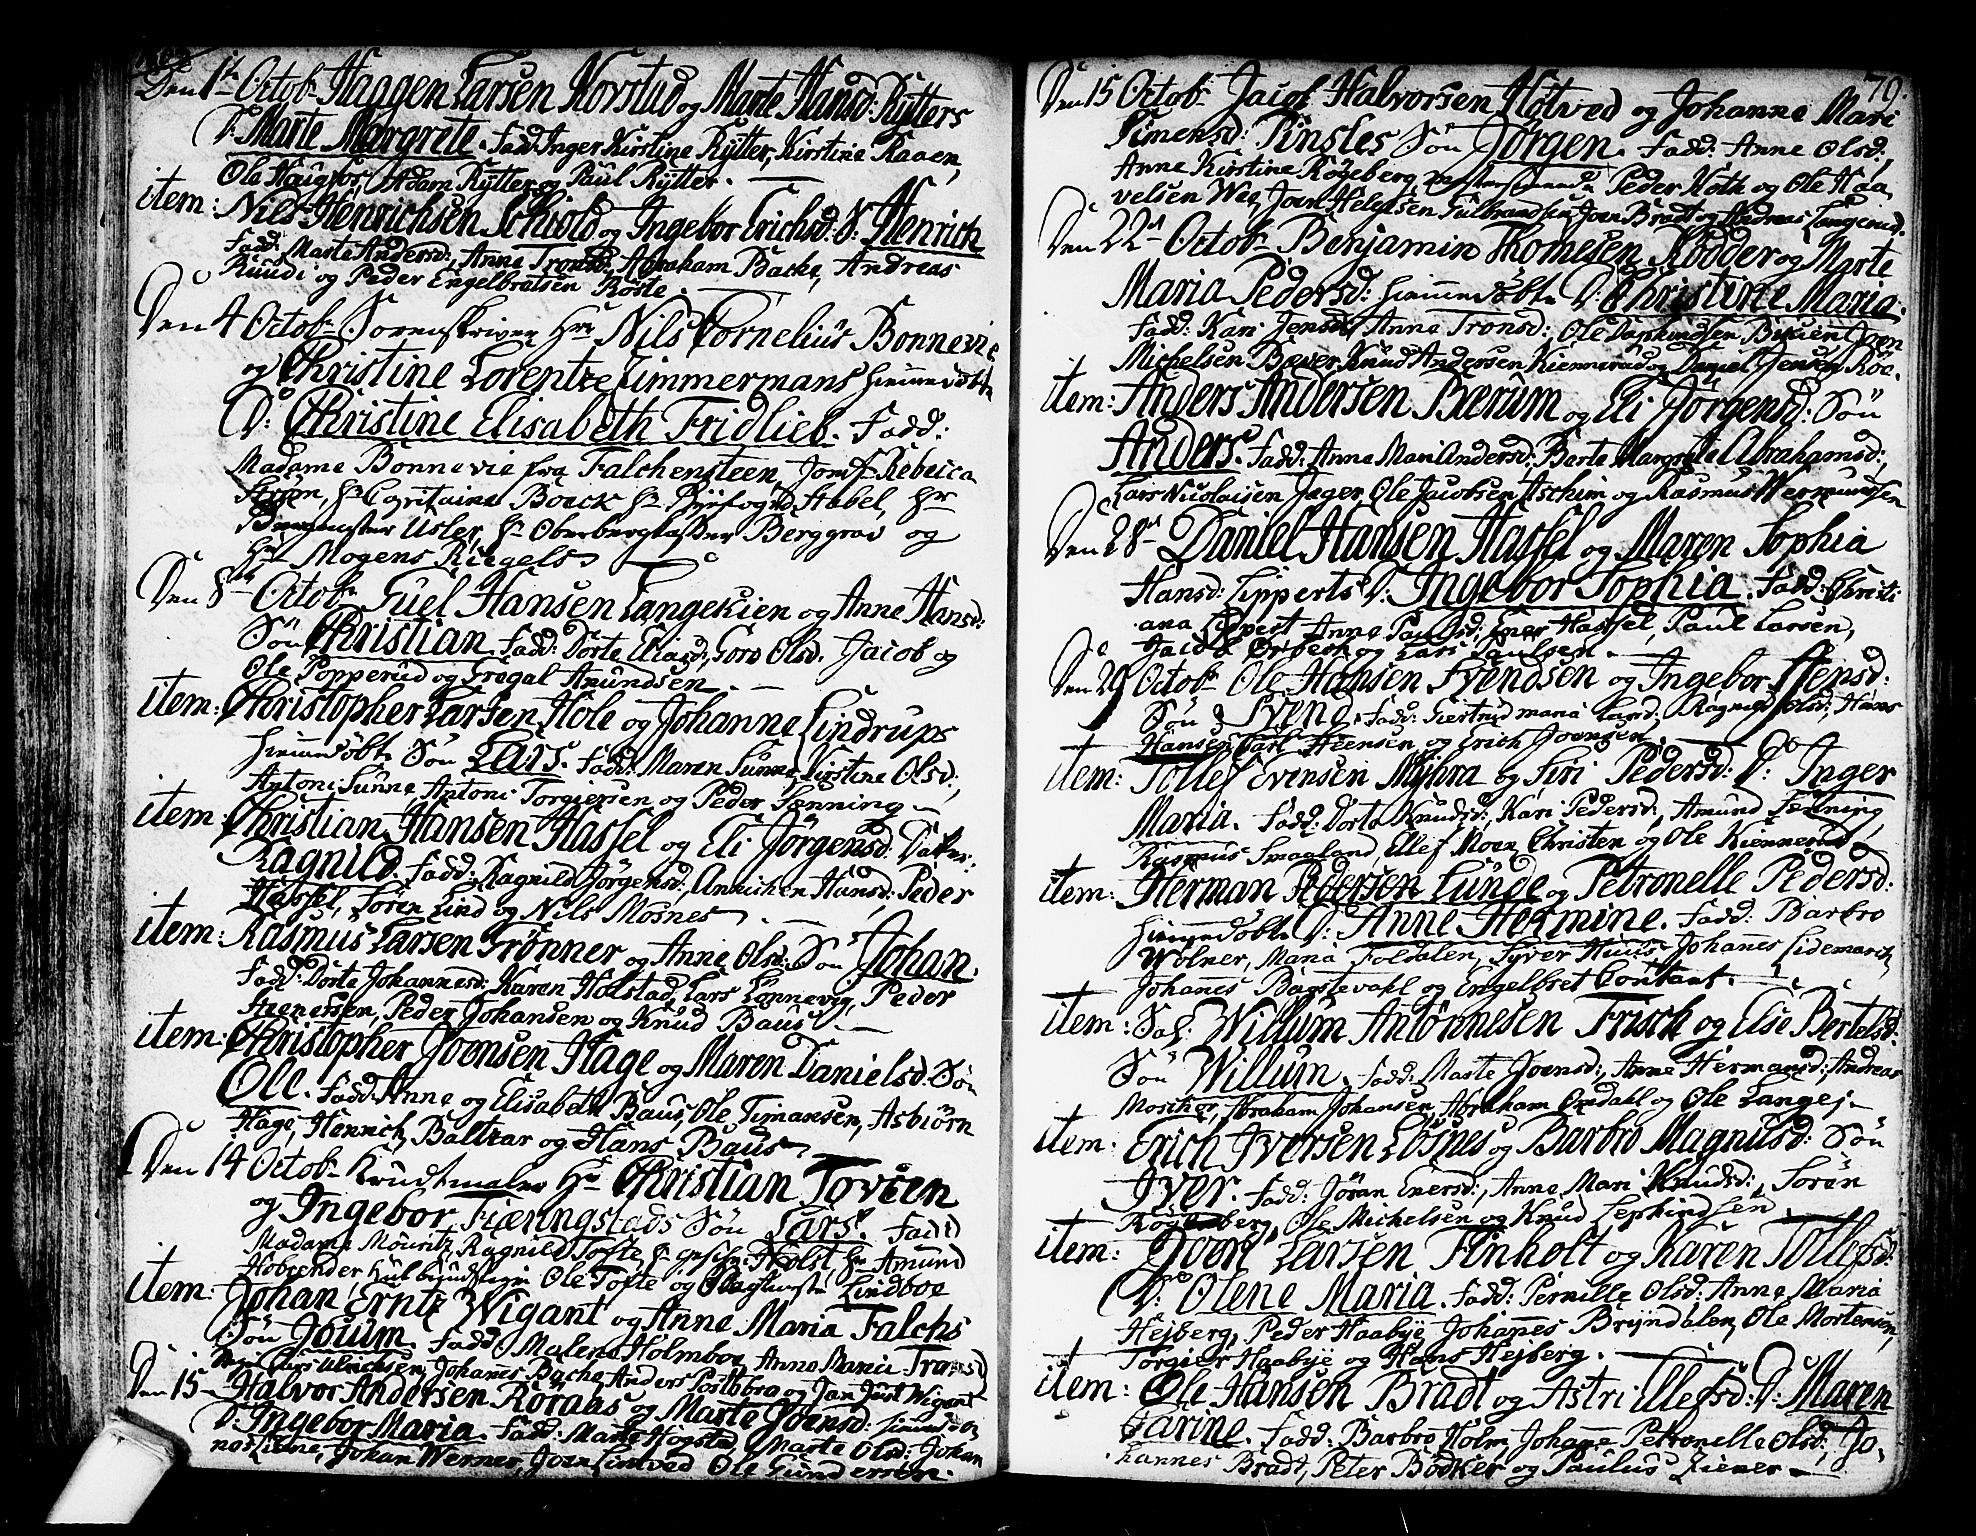 Den 1te Octobr Haggen Larsen Korstad og Marte Hansd: Rytters
D: Marte Margrete. Fadd: Inger Kirstine Rytter, Kirstine Raaen,
Ole Haugfos, Adam Rytter og Paul Rytter.
item: Nils Henrichsen Schiold og Ingebor Erichsd: S: Henrich
Fadd: Marte Andersd:, Anne Tronsd:, Abraham Backe, Andreas
Ruudi og Peder Engelbretsen Røste.
Den 4 Octobr Sorenskriver Hr Nils Cornelius Bonnevie
og Christine Lorentze Zimmermans hiemmedøbte
D: Christine Elisabeth Fridlieb. Fadd:
Madame Bonnevie fra Falchensteen, Jomf: Rebecca
Hr Capitaine Boeck Hr Byefogd Habel, Hr
Bergmester Usler, Hr Oberbergmester Berggrav og
Hr Mogens Riegels
Den 8de Octobr Guel Hansen Langekien og Anne Hansd:
Søn Christian. Fadd: Dorte Eliasd:, Goro Olsd: Jacob og
Ole Popperud og Gregal Amundsen
item: Christopher Larsen Hole og Johanne Lindrups
hiemmedøbte Søn Lars. Fadd: Maren Sunne, Kirstine Olsd:,
Antoni Sunne, Antoni Torgiersen og Peder Sønning
item: Christian Hansen Hassel og Eli Jørgensd: Dater:
Ragnild. Fadd: Ragnild Jørgensd:, Annichen Hansd: Peder
Hassel, Søren Lind og Nils Mosnes
item: Rasmus Larsen Grønner og Anne Olsd: Søn Johan.
Fadd: Dorte Johannesd: Karen Holstad, Lars Lønnevig, Peder
Steenersen, Peder Johansen og Knud Baus
item: Christopher Joensen Hage og Maren Danielsd: Søn
Ole. Fadd: Anne og Elisabeth Baus, Ole Simansen, Asbiørn
Hage, Henrich, Baltzar og Hans Baus
Den 14 Octobr Krudtmaler Hr Christian Tovsen
og Ingebor Fiæringstads Søn Lars. Fadd
Madame Mouritz, Ragnild Tofte, Hr Holst, Hr Amund
Ole Tofte og Lindboe
item: Johan Ernte Wigant og Anne Maria Falchs
Søn Jouum. Fadd: Malene Holmboe, Anne Maria Tronsd
Lars Ulrichsen, Johannes Bache, Anders Postobra og Jan Just Wigant
Den 15 Halvor Andersen Roraas og Marte Joensd:
D: Ingebor Maria. Fadd: Marte Hogstad, Marte Olsd: Johan
Johan Werner, Joen Lintved Ole Gundersen.
70.
Den 15 Octobr Jacob Halvorsen Høtved og Johanne Mari
Simensd: Pinsles Søn Jørgen. Fadd: Anne Olsd:,
Anne Kirstine Røgeberg Peder Koth og Ole Haa
velsen Wee, Joen Helgesen Gulbrandsen Joen Bradt og Andreas Langerud.
Den 22de Octobr Benjamin Thomesen Kodder og Marte
Maria Pedersd: hiemmedøbte D: Christine Maria.
Fadd: Kari Jensd: Anne Tronsd: Ole Joen
Michelsen Bæver, Knud Andersen Kiennerud og Daniel Jensen Roe.
item: Anders Andersen Bærum og Eli Jørgensd: Søn
Anders. Fadd: Anne Mari Andersd: Barte Margrete Abrahamsd:,
Lars Nicolaisen Jæger Ole Jacobsen Aschim og Rasmus Wermundsen
Den 28de Daniel Hansen Hassel og Maren Sophia
Hansd: Lipperts D: Ingebor Sophia. Fadd: Christi
ana Lippert Anne Paulsd: Ener Hassel, Paul Larsen,
Jacob Ørbech og Lars Paulsen
Den 29 Octobr Ole Hansen Svendsen og Ingebor Stensd:
Søn Svend. Fadd: Giertrud Maria Land: Ragnild Olsd:, Hans
Hansen, Carl Steensen og Erich Joensen
item: Tollef Evensen Myhra og Siri Pedersd: D: Inger
Maria. Fadd: Dorte Knudsd:, Kari Pedersd:, Amund Fenning,
Rasmus Smaaland, Ellef Moen, Christen og Ole Kiennerud
item: Herman Pedersen Lunde og Petronelle Pedersd:
hiemmedøbte D: Anne Hermine. Fadd: Barbro
Wolner, Maria Foldalen, Syver Huus Johannes Lidemarck
Johannes Bagstevahl og Engelbret Contant.
item: Sal: Willum Antonnesen Frisch og Else Bertelsd:
Søn Willum. Fadd: Marte Joensd:, Anne Hermansd:, Andreas
Moscher, Abraham Johansen, Abraham Omdahl og Ole Lange
item: Erich Iversen Losnes og Barbro Magnusd: Søn
Iver. Fadd: Jøran Enersd:, Anne Mari Knudsd:, Søren
Røgeberg, Ole Michelsen og Knud
item: Joen Larsen Finholt og Karen Tollefsd:
D: Olene Maria. Fadd: Pernille Olsd: Anne Maria
Hejberg, Peder Haabye, Johannes Bryndalen, Ole Mortensen,
Torgier Haabye og Hans Hejberg.
item: Ole Hansen Bradt og Astri Ellefsd: D: Maren
Carine. Fadd: Barbro Holm, Johanne Petronelle Olsd:, Jo
hannes Bradt, Peter Bødker og Paulus Ziener